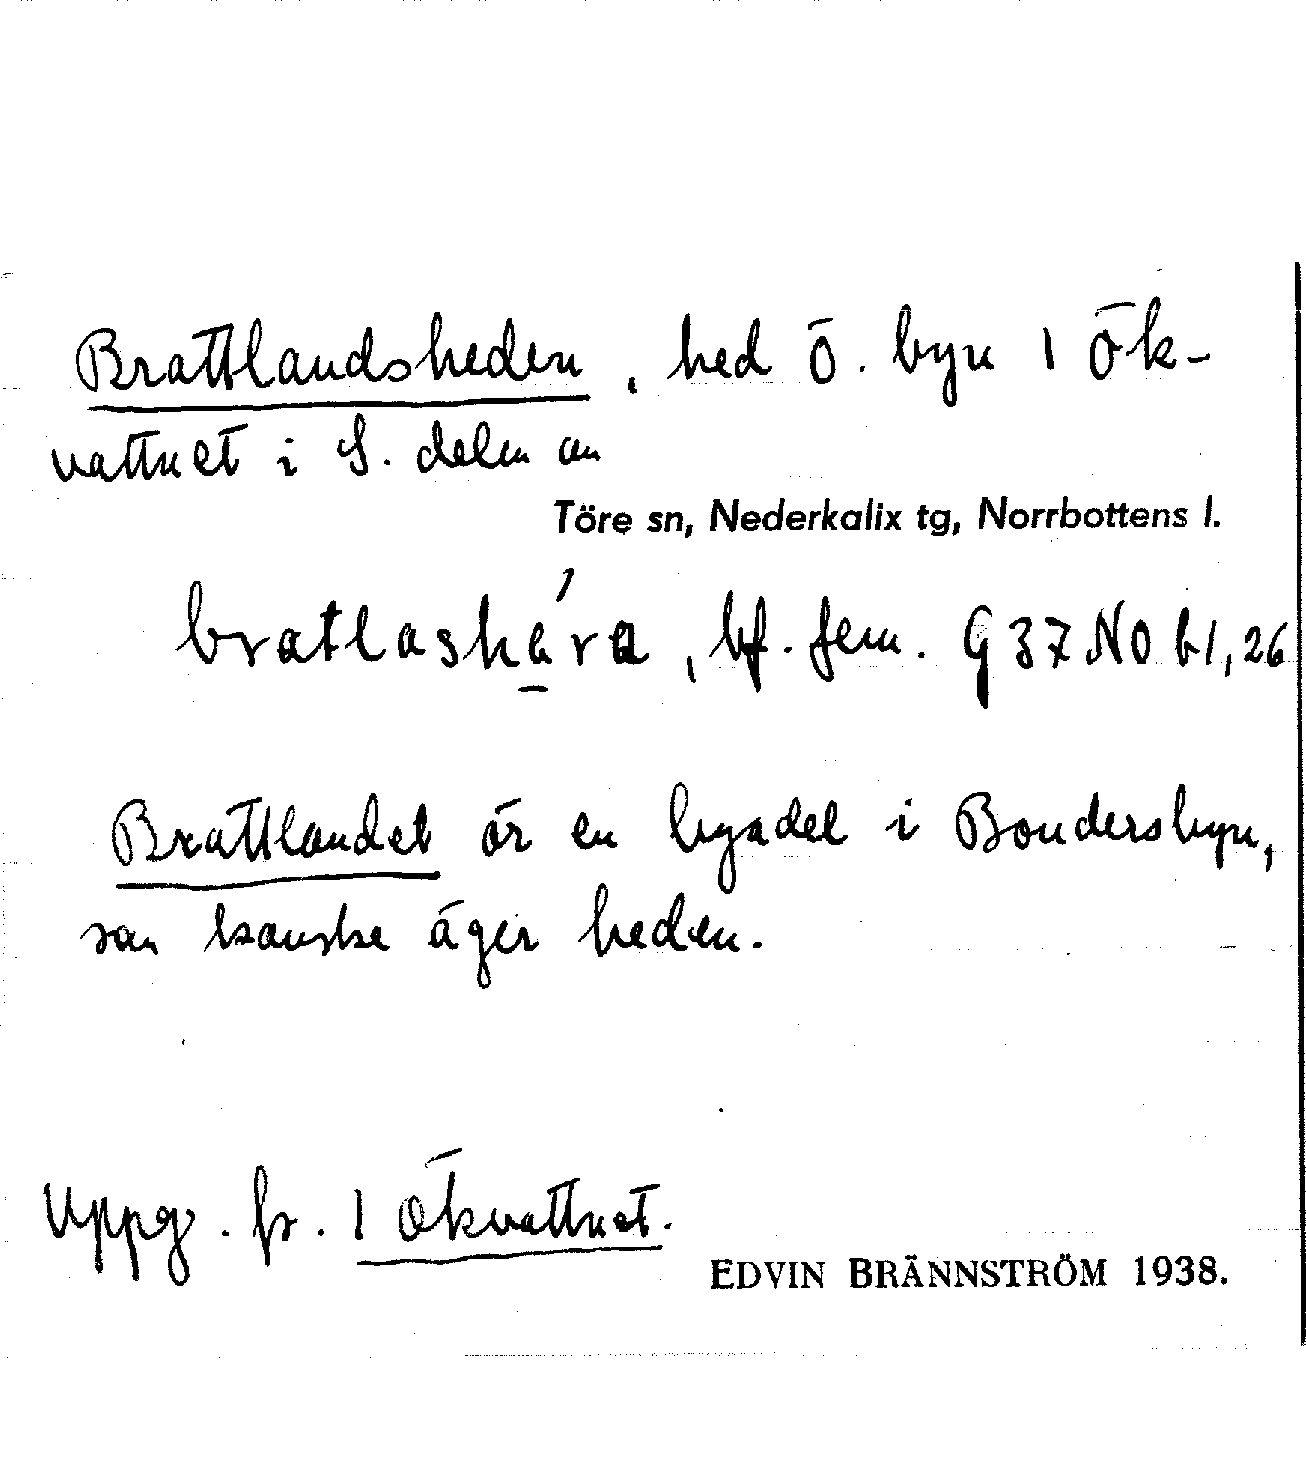 Brattlandsheden, hed Ö. byn 1 Ök-
vattnet i S. delen av
Töre sn, Nederkalix tg, Norrbottens l.
bratlashéra, bf. fem. G 37 NO b1,26
Brattlandet är en byadel i Bondersbyn,
som kanske äger heden.
Uppg. fr. 1 Ökvattnet.
EDVIN BRÄNNSTRÖM 1938.